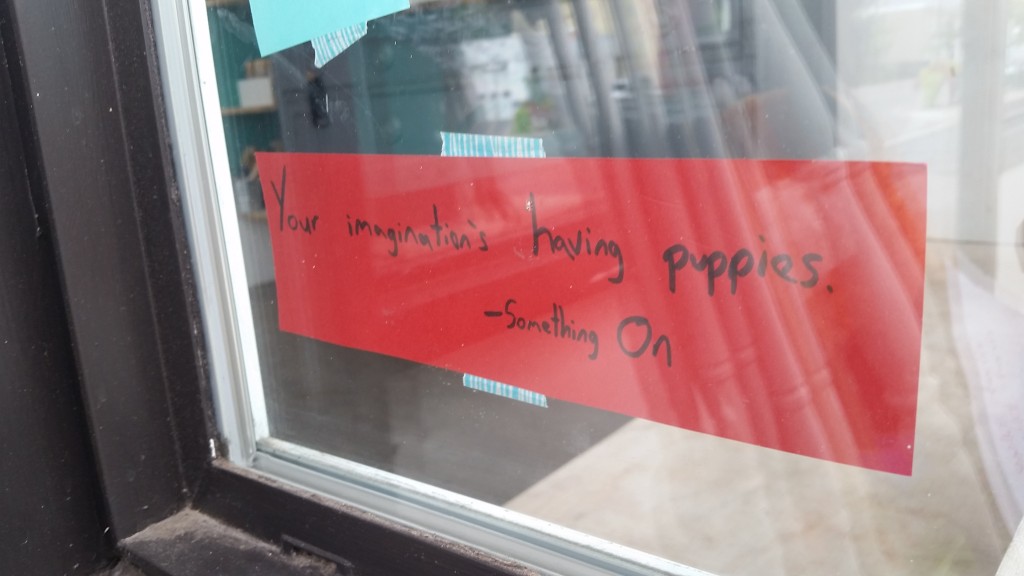 Your imagination's having puppies.
-Something On